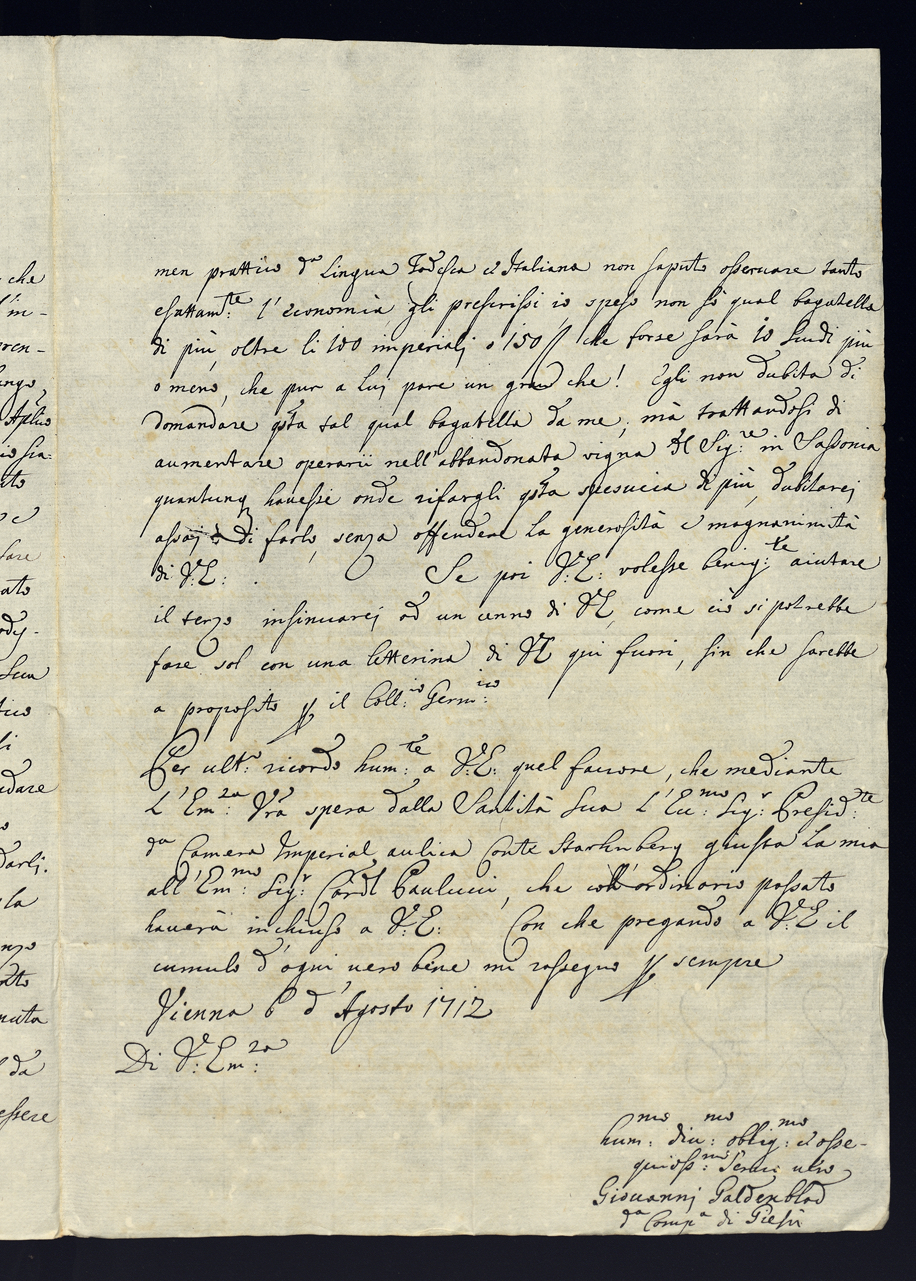 che
l'in-
pren-
ungo,
Aplico
ato
sare
ato
ody-
Sua
tuo
li
udare
darli.
la
nzo
nuta
da
essere
men prattico da Lingua Todesca et Italiana non saputo osservare tanto
esattamte: l'economia gli prescrissi io, speso non sò qual bagatella
di più, oltre li 100 imperialj o 150 f che forse sarà 10 Scudi più
o meno, che pur a luj pare un gran che! Egli non dubita di
domandare qsta tal qual bagatella da me, mà trattandosi di
aumentare operarii nell'abbandonata vigna del Sigre: in Sassonia
quantunq havesse onde rifargli qsta spesuccia di più, dubitarej
assaj di farlo, senza offendere la generosità e magnanimità
di V:E: . Se poi V:E: volesse benigte: aiutare
il terzo insinuarej ad un cenno di VE, come ciò si potrebbe
fare sol con una letterina di VE qui fuori, sin che sarebbe
a proposito p il Collio: Germico:
Per ulto: ricordo humte: a V:E: quel favore, che mediante
L'Emza: Vra spera dalla Santità Sua L'Ecmo: Sigr: Presidte:
da Camera Imperial aulica Conte Starhnberg giusta la mia
all'Emmo: Sigr: Cardl Paulucci, che coll'ordinario passato
haverà inchiuso a V:E: Con che pregando a V:E il
cumulo d'ogni vero bene mi rassegno p sempre
Vienna 6 d'Agosto 1712
Di V:Emza:
hummo: divmo: obligmo: et osse-
quiossmo: Servo vero
Giovannj Galdenblad
da Compa di Giesù